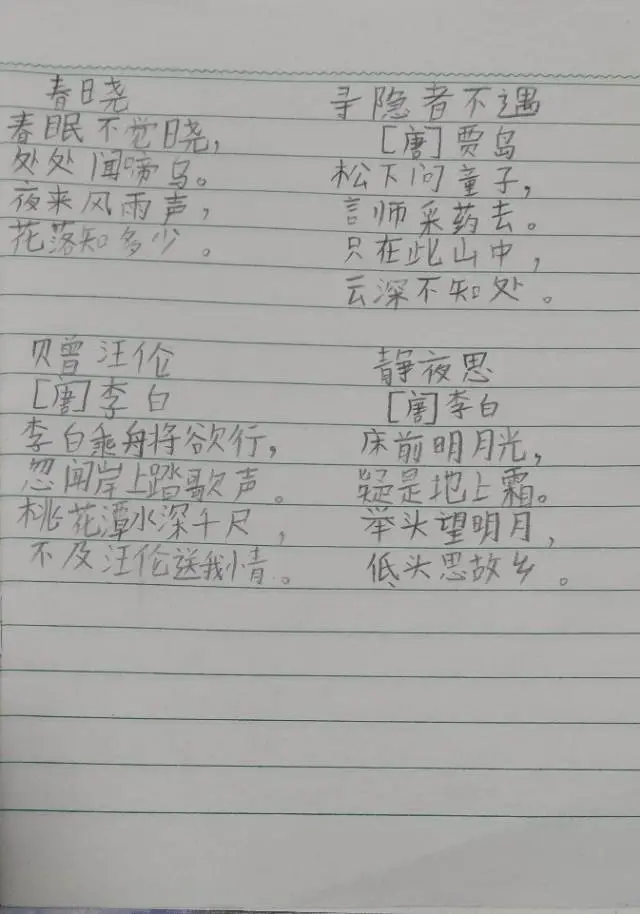 春日晓
春眠不觉晓,
处处闻啼鸟。
夜来风雨声,
花落知多少。
寻隐者不遇
[唐]贾岛
松下问童子,
言师采药去。
只在此山中,
云深不知处。
赠汪伦
[唐]李白
李白乘舟将欲行,
忽闻岸上踏歌声。
桃花潭水深千尺,
不及汪伦送我情。
静夜思
[唐]李白
床前明月光,
疑是地上霜。
举头望明月,
低头思故乡。